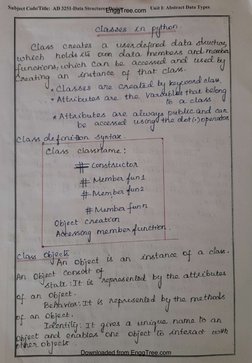 Subject Code/Title: AD 3251-Data Structures Design EnggTree.com Unit I: Abstract Data Types
Classes in python
Class creates a user defined data structure,
which holds its own data members and member
functions, which can be accessed and used by
creating an instance of that class.
* Classes are created by keyword class.
* Attributes are the variables that belong
to a class
* Attributes are always public and can
be accessed using the dot(.) operator
Class definition syntax:
Class classname:
# Constructor
# Member fun1
# Member fun2
# Member funn
Object creation
Accessing member function.
Class Objects
An Object is an instance of a class.
An Object consist of
state: It is represented by the attributes
of an Object.
Behavior: It is represented by the methods
of an Object.
Identity: It gives a unique name to an
Object and enables one object to interact with
other objects
Downloaded from EnggTree.com